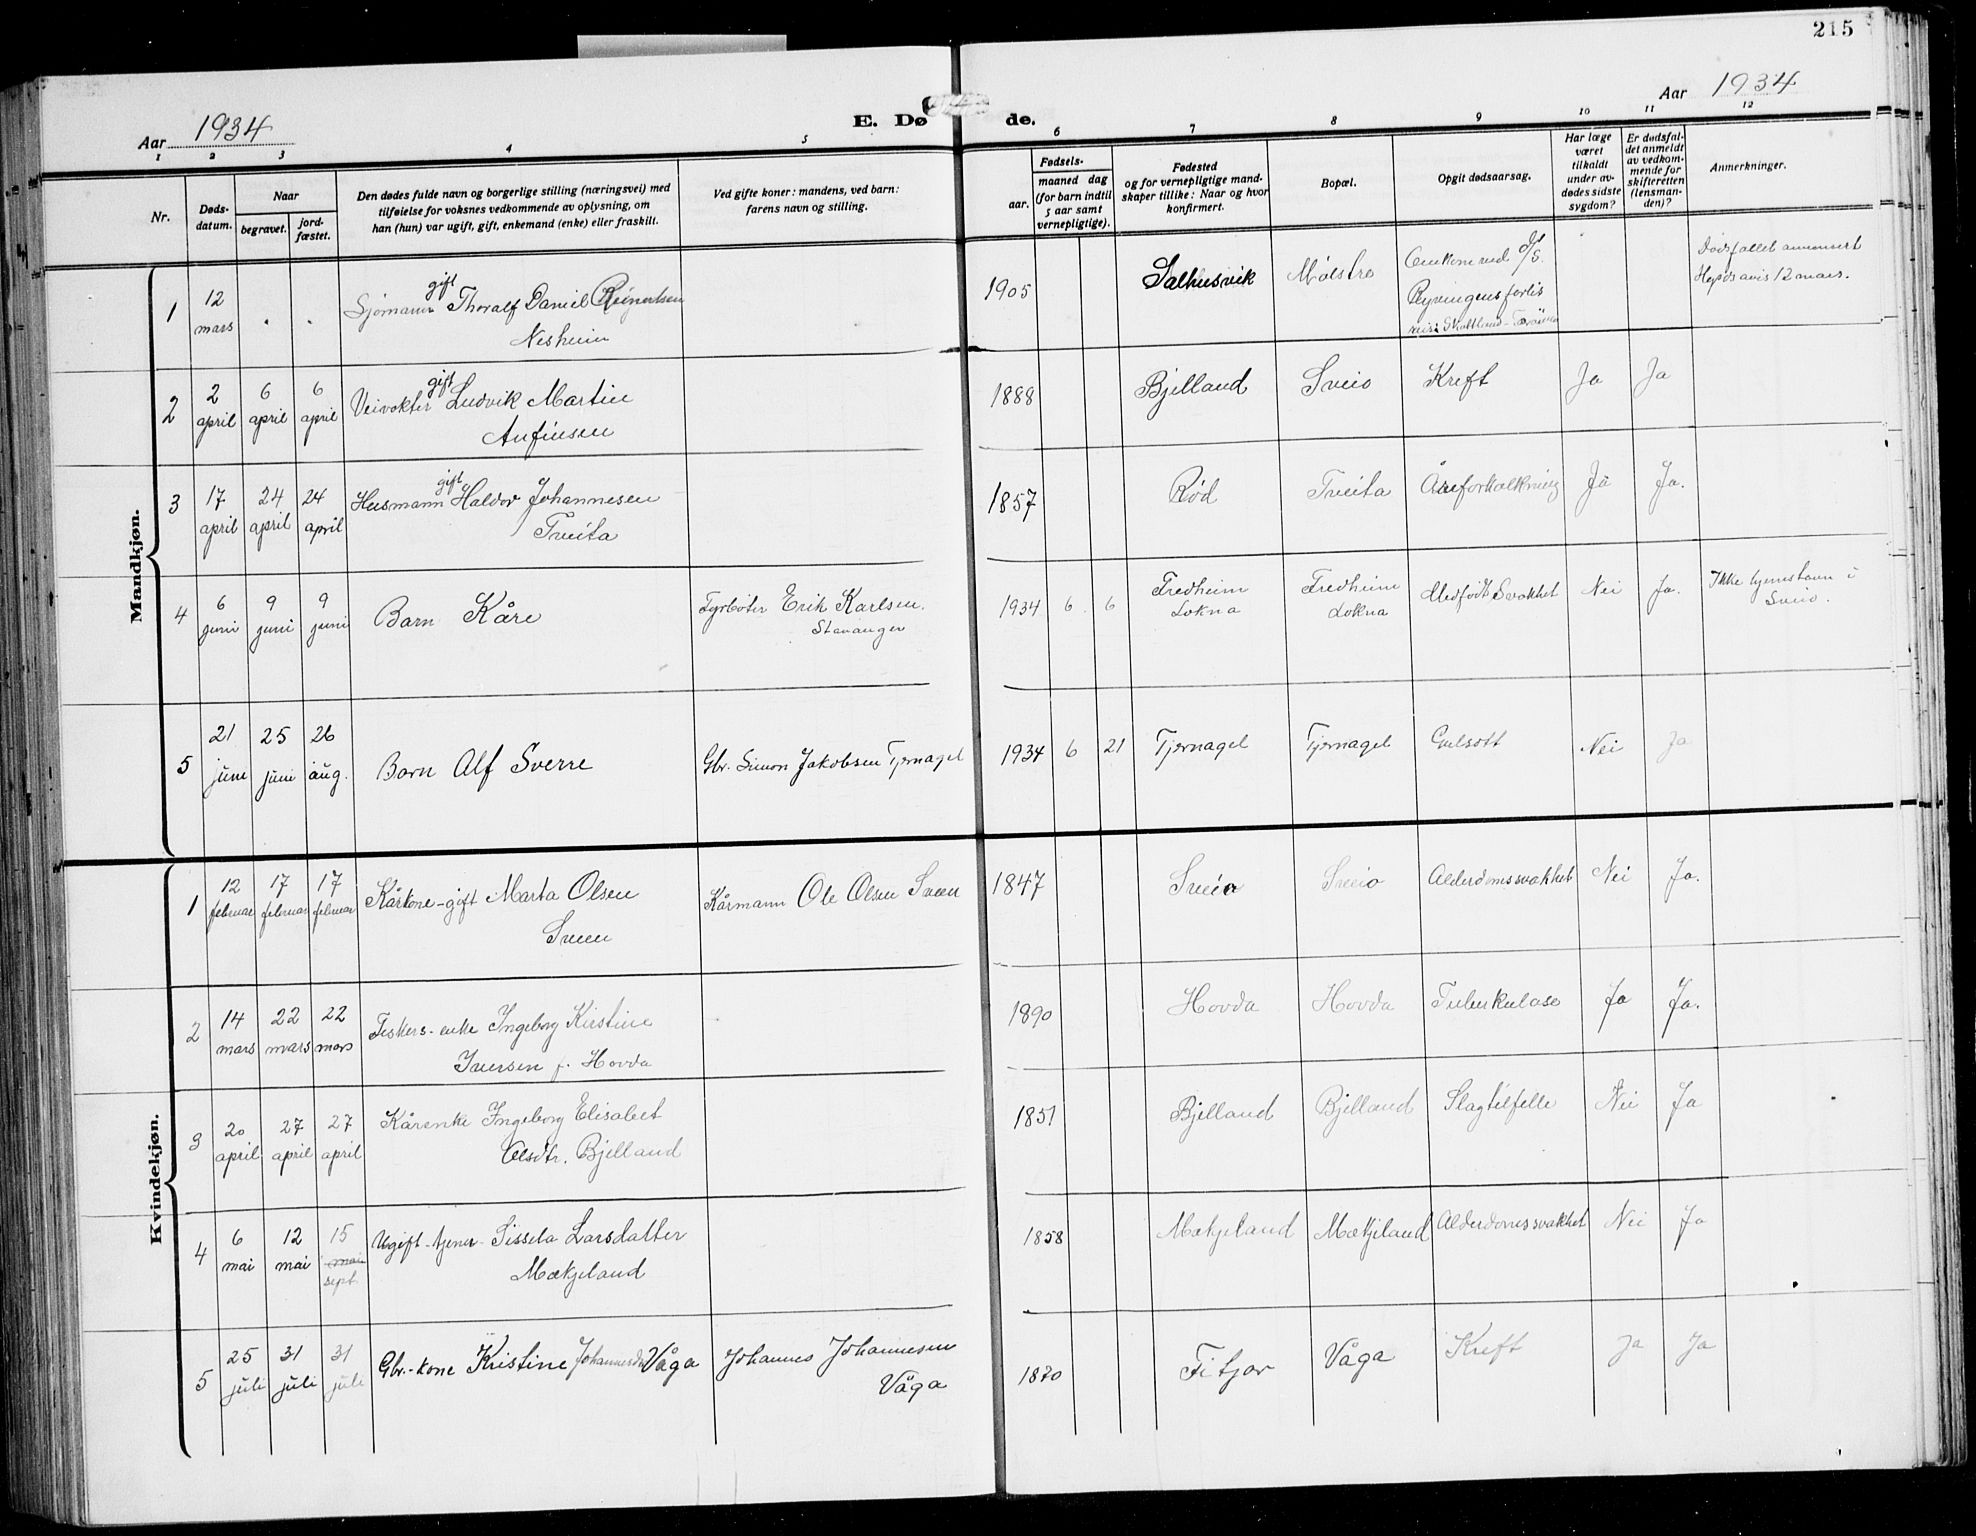 215
Aar 1934
E. Dø de.
Aar 1934
1 2 3 4 5 6 7 8 9 10 11 12
Nr.
Døds-
datum.
Naar
begravet.
jord-
fæstet.
Den dødes fulde navn og borgerlige stilling (næringsvei) med
tilføielse for voksnes vedkommende av oplysning, om
han (hun) var ugift, gift, enkemand (enke) eller fraskilt.
Ved gifte koner: mandens, ved barn:
farens navn og stilling.
Fødsels-
aar.
maaned dag
(for barn indtil
5 aar samt
vernepligtige).
Fødested
og for vernepligtige mand-
skaper tillike: Naar og hvor
konfirmert.
Bopæl.
Opgit dødsaarsag.
Har læge
været
tilkaldt
under av-
dødes sidste
sygdom?
Er dødsfal-
det anmeldt
av vedkom-
mende for
skifteretten
(lensman-
den)?
Anmerkninger.
Mandkjøn.
1 12 mars . . Sjømann gift Thoralf Daniel Reinertsen
Nesheim
1905 Salhusvik Mølstre Omkom ved d/s.
Ryvingens forlis
Dødsfallet annonsert
Hgsds avis 12 mars.
2 2 april 6 april 6 april Veivokter gift Ludvik Martin
Anfinsen
1888 Bjelland Sveio Kreft Ja Ja
3 17 april 24 april 24 april Husmann gift Haldor Johannesen
Tveita
1857 Rød Tveita Åreforkalkning Ja Ja.
4 6 juni 9 juni 9 juni Barn Kåre
Fyrbøter Erik Karlsen.
Stavanger
1934 6 6 Fredheim
Lokna
Fredheim
Lokna
Medfødt Svakhet Nei Ja.
Ikke hjemstavn i
Sveio.
5 21 juni 25 juni 26 aug. Barn Alf Sverre
Gbr. Simon Jakobsen Tjernagel
1934 6 21 Tjernagel Tjernagel Gulsott Nei Ja
Kvindekjøn.
1 12 februar 17 februar 17 februar Kårkone-gift Marta Olsen
Sveen
Kårmann Ole Olsen Sveen
1847 Sveio Sveio Alderdomssvakhet Nei Ja.
2 14 mars 22 mars 22 mars Fiskers-enke Ingeborg Kirstine
Iversen f. Hovda
1890 Hovda Hovda Tuberkulose Ja Ja.
3 20 april 27 april 27 april Kårenke Ingeborg Elisabet
Olsdtr. Bjelland
1851 Bjelland Bjelland Slagtilfelle Nei Ja
4 6 mai 12 mai 15 mai sept. Ugift-tjener- Sissela Larsdatter
Mækjeland
1858 Mækjeland Mækjeland Alderdomssvakhet Nei Ja
5 25 juli 31 juli 31 juli Gbr.-kone Kristine Johannesdtr Våga
Johannes Johannesen
Våga
1870 Fitjar Våga Kreft Ja Ja